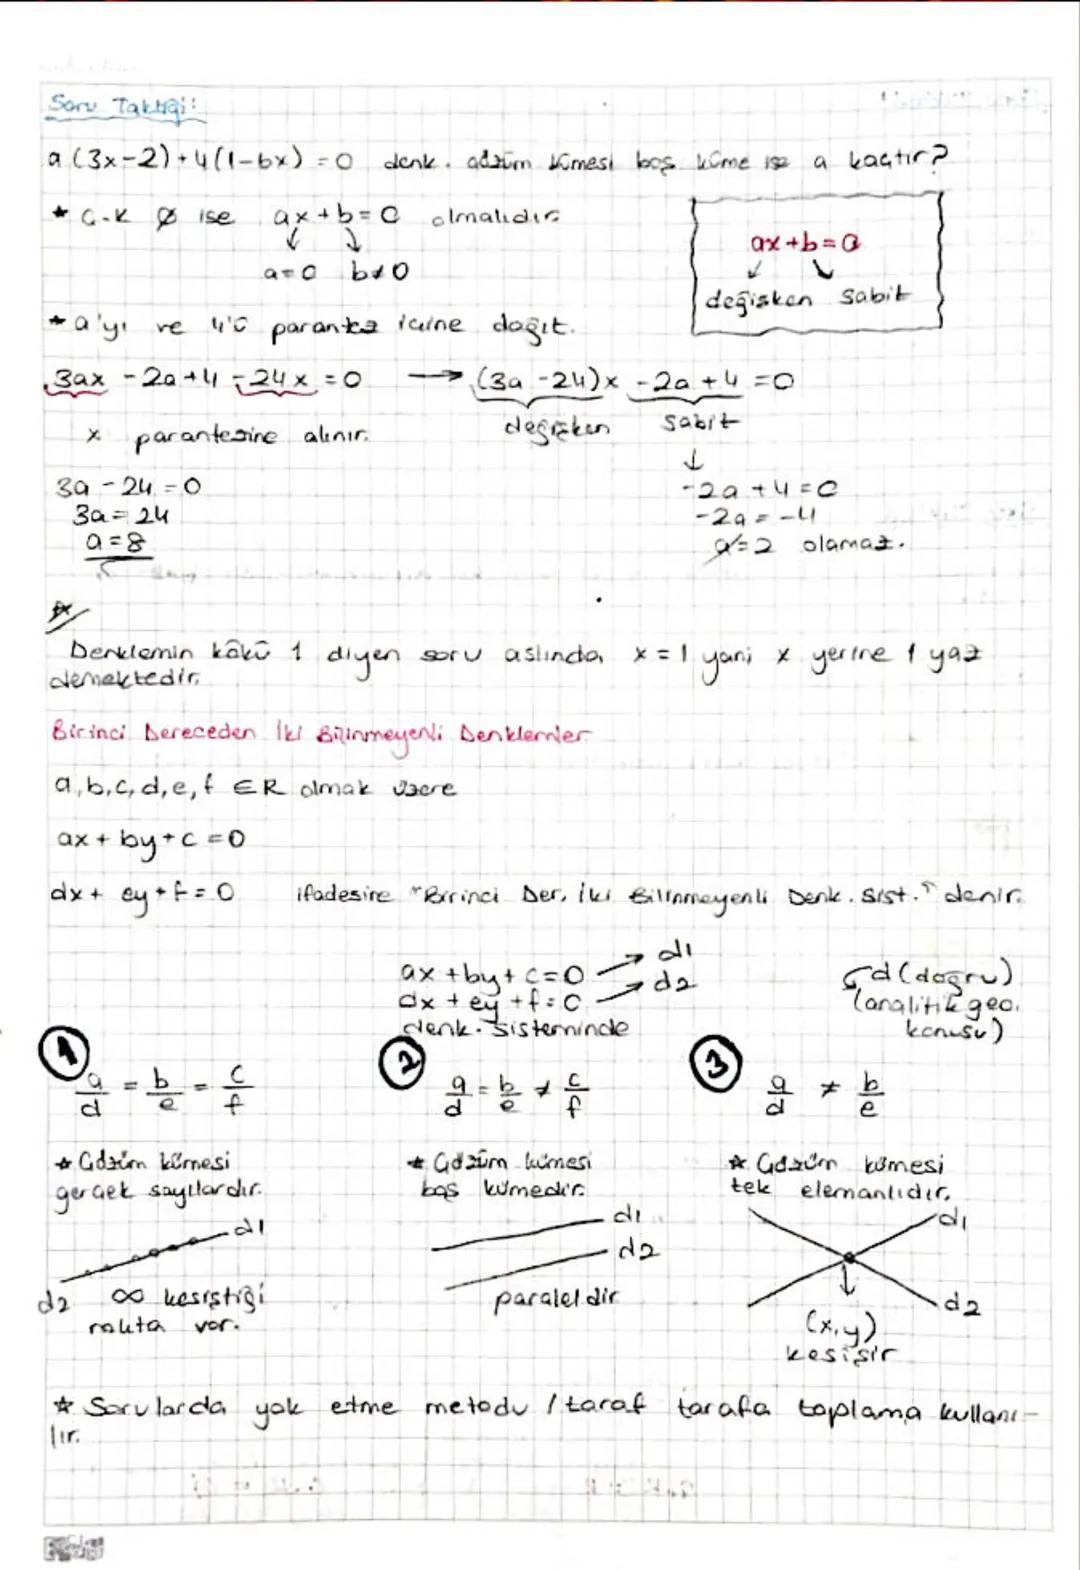 Soru Taktiği:
a(3x-2)+4(1-6x)=0 denk. çözüm kümesi boş küme ise a kaçtır?
* Ç.K ∅ ise ax+b=0 olmalıdır.
a=0 b≠0
ax+b=0
değişken sabit
* a'yı ve 4'ü parantez içine dağıt.
3ax -2a+4 -24x=0 → (3a-24)x -2a+4=0
x parantezine alınır.
değişken sabit
3a-24=0
3a=24
a=8
-2a+4=0
-2a=-4
a=2 olamaz.
Denklemin kökü 1 diyen soru aslında x=1 yani x yerine 1 yaz
demektedir.
Birinci Dereceden İki Bilinmeyenli Denklemler
a,b,c,d,e,f ∈R olmak üzere
ax+by+c=0
dx+ey+f=0 ifadesine "Birinci Der. İki Bilinmeyenli Denk. Sist." denir.
ax+by+c=0 → d1
dx+ey+f=0 → d2
denk. sisteminde
d(doğru)
(analitik geo.
konusu)
1 a/d = b/e = c/f
* Çözüm kümesi
gerçek sayılardır.
d1
d2
∞ kesiştiği
nokta var.
2 a/d = b/e ≠ c/f
* Çözüm kümesi
boş kümedir.
d1
d2
paraleldir
3 a/d ≠ b/e
* Çözüm kümesi
tek elemanlıdır.
d1
d2
(x,y)
kesişir
* Sorularda yok etme metodu / taraf tarafa toplama kullanı-
lır.